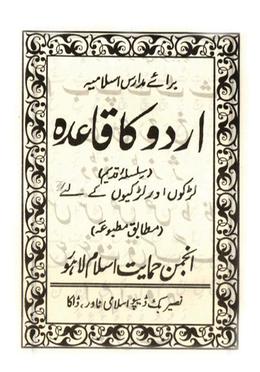 برائے مدارس اسلامیہ
اردو کا قاعدہ
(سلسلۂ قدیم)
لڑکوں اور لڑکیوں کے لئے
(مطابق مطبوعہ)
انجمن حمایت اسلام لاہور
نصیر بک ڈپو اسلامی ٹاور، ڈاکا